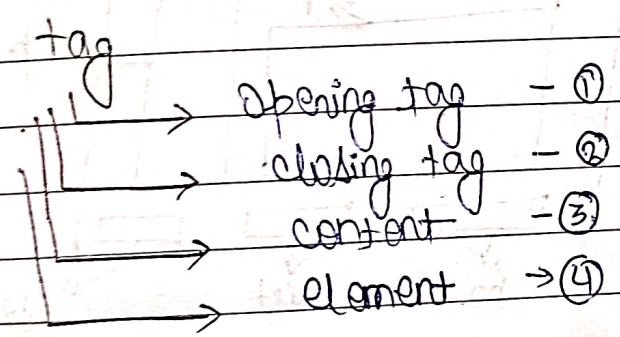 tag
opening tag - ①
closing tag - ②
content - ③
element → ④